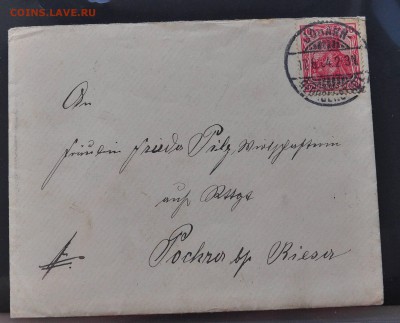 COINS.LAVE.RU
An
Fräulein Frieda Pilz, Wirtschafterin
auf Rttgt
Pochra b/ Riesa